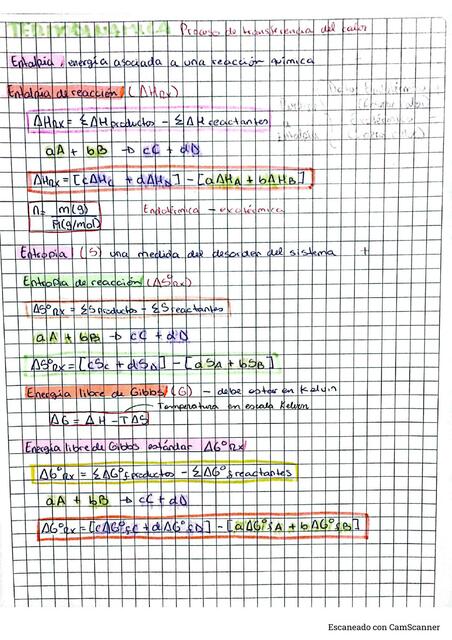 TERMODINÁMICA Proceso de transferencia del calor
Entalpia, energía asociada a una reacción química
Entalpia de reacción (ΔHrx)
ΔHrx = ΣΔH productos - ΣΔH reactantes
aA + bB → cC + dD
ΔHrx = [cΔHc + dΔHD] - [aΔHA + bΔHB]
n = m(g)
M(g/mol)
Endotérmica - exotérmica
Entropia (S) una medida del desorden del sistema
Entropía de reacción (ΔS°rx)
ΔS°rx = ΣS productos - ΣS reactantes
aA + bB → cC + dD
ΔS°rx = [cSc + dSD] - [aSA + bSB]
Energia libre de Gibbs (G) - debe estar en Kelvin
Temperatura en escala Kelvin
ΔG = ΔH - TΔS
Energia libre de Gibbs estándar ΔG°rx
ΔG°rx = ΣΔG°f productos - ΣΔG°f reactantes
aA + bB → cC + dD
ΔG°rx = [cΔG°fC + dΔG°fD] - [aΔG°fA + bΔG°fB]
Escaneado con CamScanner